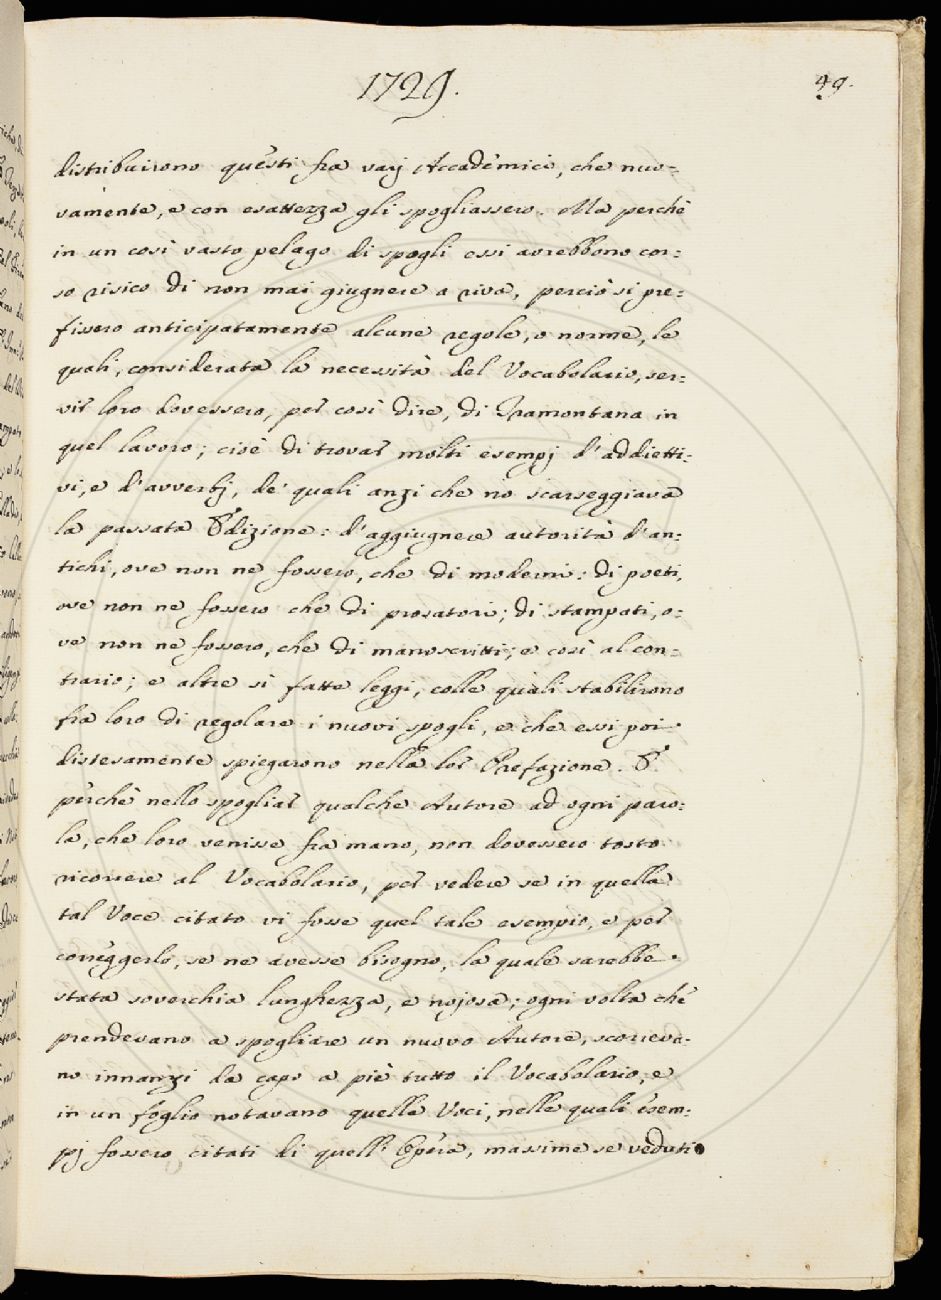 1729.
49.
distribuirono questi fra varj Accademici, che nuo=
vamente, e con esattezza gli spogliassero. Ma perchè
in un così vasto pelago di spogli essi avrebbono cor=
so risico di non mai giugnere a riva, perciò si pre=
fissero anticipatamente alcune regole, o norme, le
quali, considerata la necessità del Vocabolario, ser=
vir loro dovessero, per così dire, di Tramontana in
quel lavoro; cioè di trovar molti esempj d'addietti=
vi, e d'avverbj, de' quali anzi che nò scarseggiava
la passata Edizione: d'aggiugnere autorità d'an=
tichi, ove non ne fossero, che di moderni: di poeti,
ove non ne fossero che di prosatori; di stampati, o=
ve non ne fossero, che di manoscritti; e così al con=
trario; e altre sì fatte leggi, colle quali stabilirono
fra loro di regolare i nuovi spogli, e che essi poi
distesamente spiegarono nella lor Prefazione. E
perchè nello spogliar qualche Autore ad ogni paro=
la, che loro venisse fra mano, non dovessero tosto
ricorrere al Vocabolario, per vedere se in quella
tal Voce citato vi fosse quel tale esempio, e per
correggerlo, se ne avesse bisogno, la quale sarebbe
stata soverchia lunghezza, e nojosa; ogni volta che
prendevano a spogliare un nuovo Autore, scorreva=
no innanzi da capo a piè tutto il Vocabolario, e
in un foglio notavano quelle Voci, nelle quali esem=
pj fossero citati di quell'Opera, massime se veduti